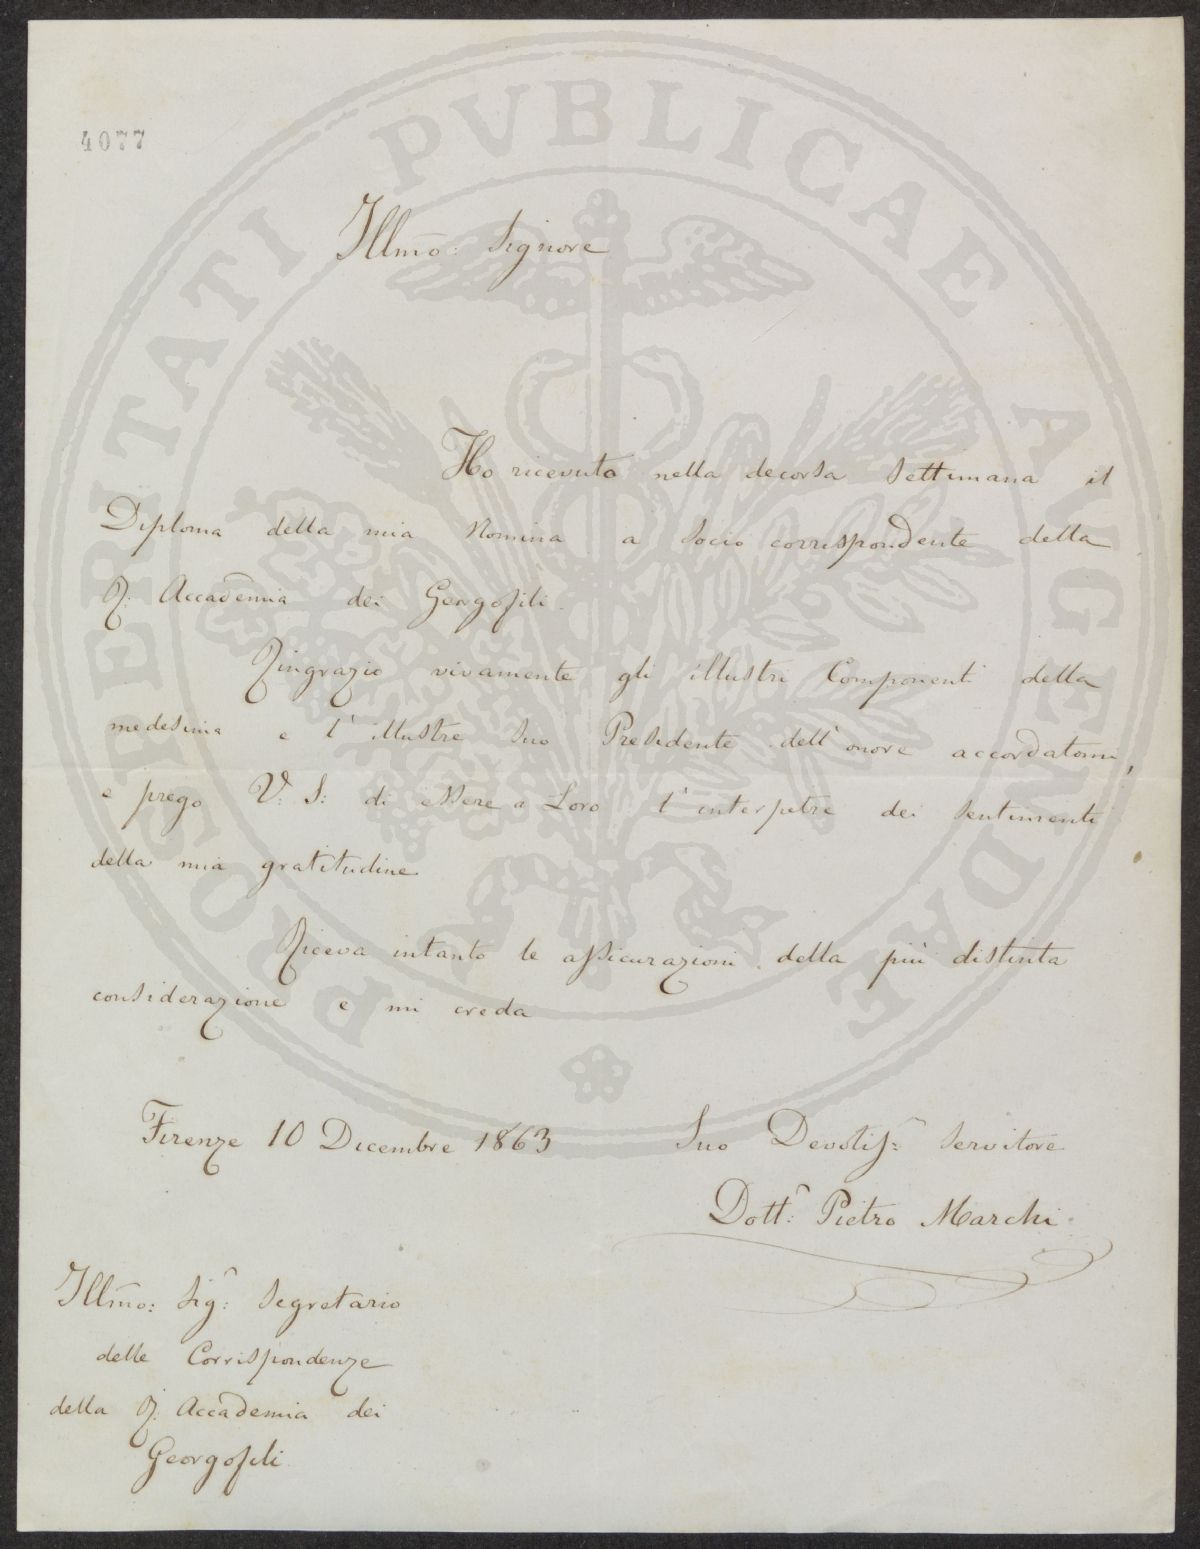 4077
Illmo: Signore
Ho ricevuto nella decorsa Settimana il
Diploma della mia Nomina a Socio corrispondente della
R. Accademia dei Georgofili.
Ringrazio vivamente gli illustri Componenti della
medesima e l'illustre suo Presidente dell'onore accordatomi,
e prego V: S: di essere a Loro l'interpetre dei sentimenti
della mia gratitudine
Riceva intanto le assicurazioni della più distinta
considerazione e mi creda
Firenze 10 Dicembre 1863
Suo Devotiss: Servitore
Dott: Pietro Marchi
Illmo: Sig: Segretario
delle Corrispondenze
della R. Accademia dei
Georgofili
PROSPERITATI PVBLICAE AVGENDAE